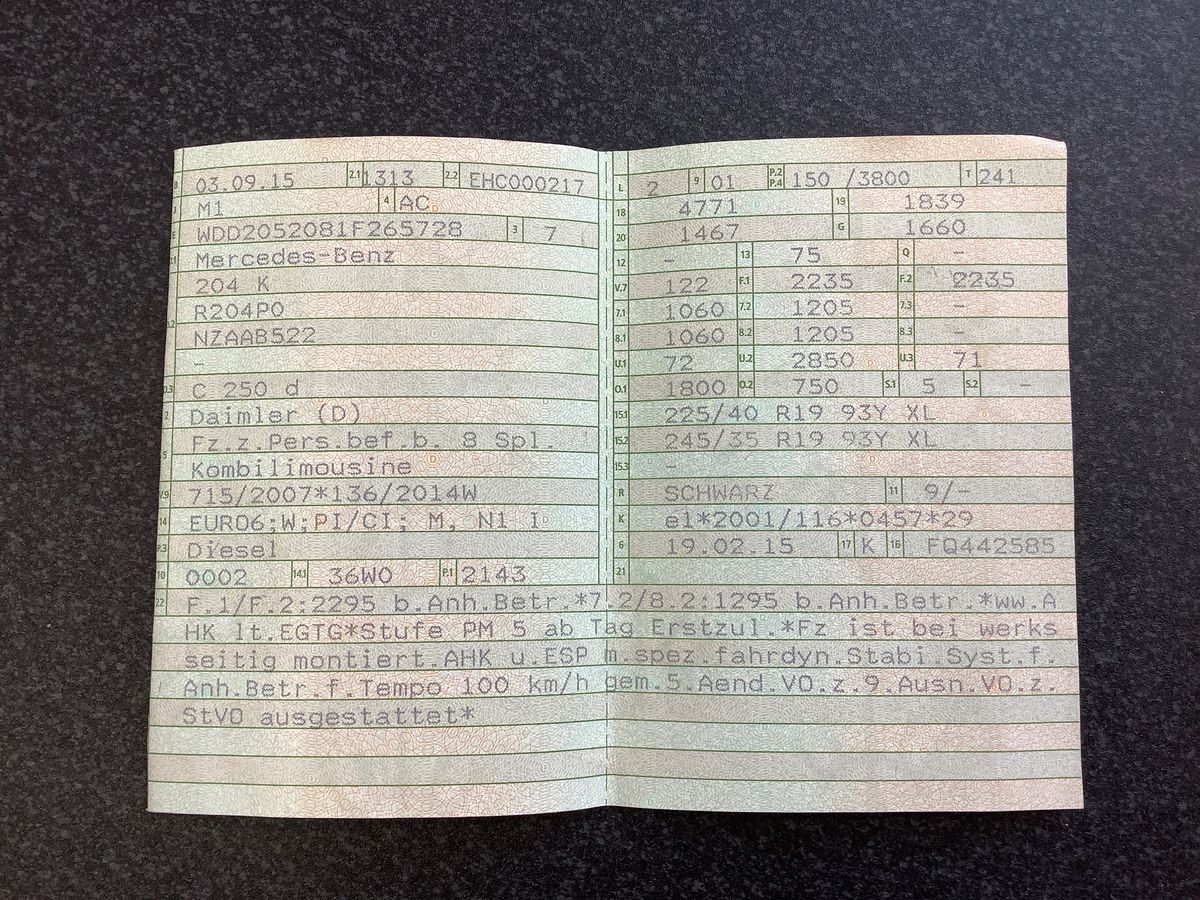 B 03.09.15 2.1 1313 2.2 EHC000217
J M1 4 AC
WDD2052081F265728 3 7
Mercedes-Benz
204 K
R204P0
NZAAB522
-
C 250 d
Daimler (D)
Fz.z.Pers.bef.b. 8 Spl.
5 Kombilimousine
715/2007*136/2014W
14 EURO6;W;PI/CI; M, N1 I
P.3 Diesel
10 0002 14.1 36W0 P.1 2143
L 2 9 01 P.2 P.4 150 /3800 T 241
18 4771 19 1839
20 1467 G 1660
12 - 13 75 Q -
V.7 122 F.1 2235 F.2 2235
7.1 1060 7.2 1205 7.3 -
8.1 1060 8.2 1205 8.3 -
U.1 72 U.2 2850 U.3 71
O.1 1800 O.2 750 S.1 5 S.2 -
15.1 225/40 R19 93Y XL
15.2 245/35 R19 93Y XL
15.3 -
R SCHWARZ 11 9/-
K e1*2001/116*0457*29
6 19.02.15 17 K 16 FQ442585
21
22 F.1/F.2:2295 b.Anh.Betr.*7.2/8.2:1295 b.Anh.Betr.*ww.A
HK lt.EGTG*Stufe PM 5 ab Tag Erstzul.*Fz ist bei werks
seitig montiert.AHK u.ESP m.spez.fahrdyn.Stabi.Syst.f.
Anh.Betr.f.Tempo 100 km/h gem.5.Aend.VO.z.9.Ausn.VO.z.
StVO ausgestattet*